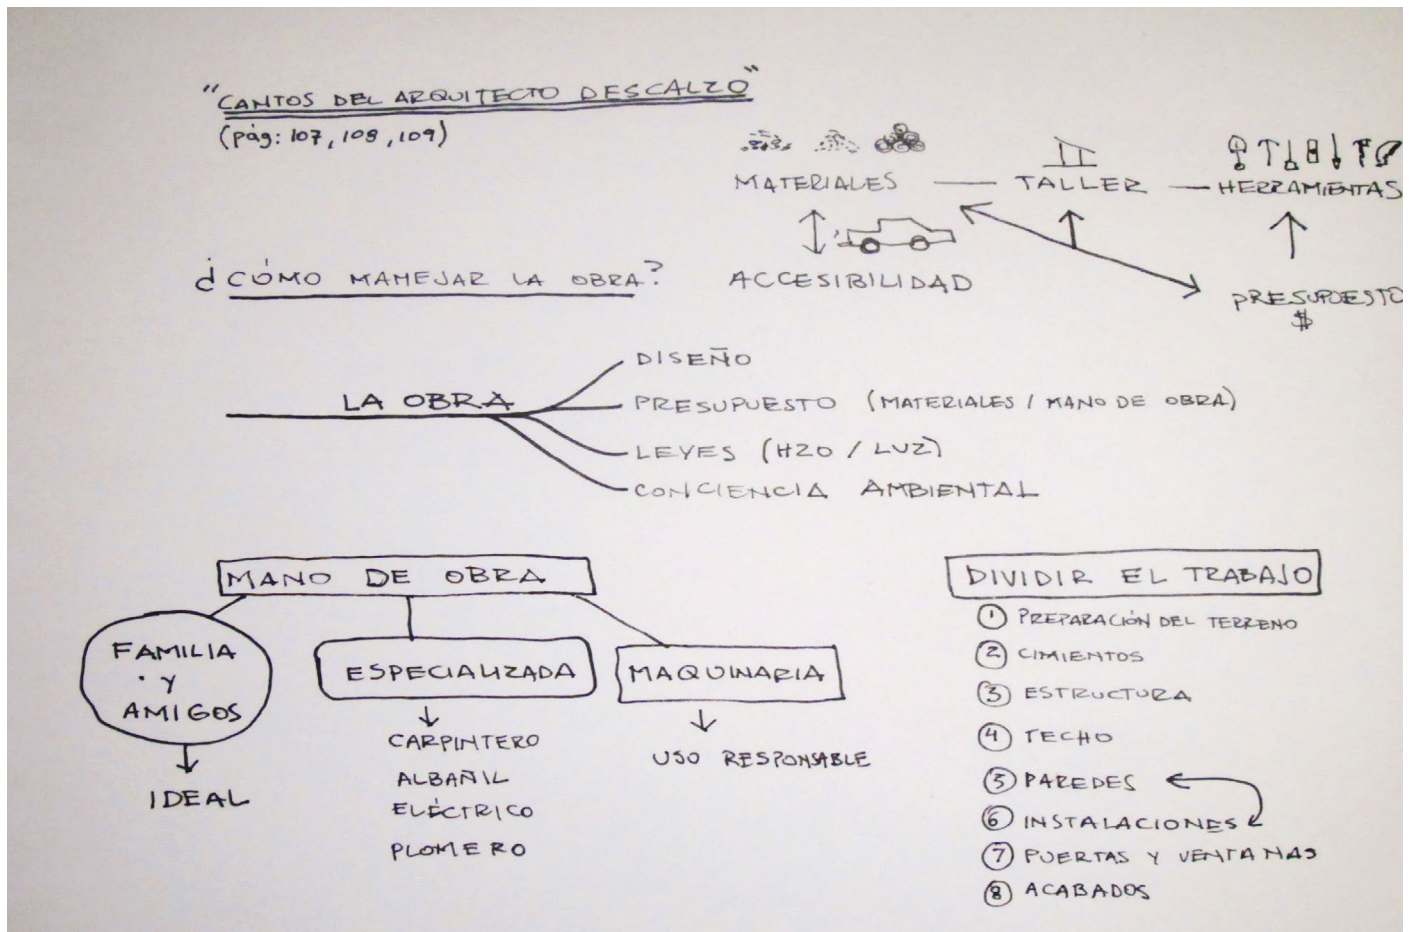 "CANTOS DEL ARQUITECTO DESCALZO"
(pág: 107, 108, 109)
MATERIALES — TALLER — HERRAMIENTAS
ACCESIBILIDAD
PRESUPUESTO
$
¿CÓMO MANEJAR LA OBRA?
LA OBRA
DISEÑO
PRESUPUESTO (MATERIALES / MANO DE OBRA)
LEYES (H2O / LUZ)
CONCIENCIA AMBIENTAL
MANO DE OBRA
FAMILIA
Y
AMIGOS
IDEAL
ESPECIALIZADA
CARPINTERO
ALBAÑIL
ELÉCTRICO
PLOMERO
MAQUINARIA
USO RESPONSABLE
DIVIDIR EL TRABAJO
1 PREPARACIÓN DEL TERRENO
2 CIMIENTOS
3 ESTRUCTURA
4 TECHO
5 PAREDES
6 INSTALACIONES
7 PUERTAS Y VENTANAS
8 ACABADOS